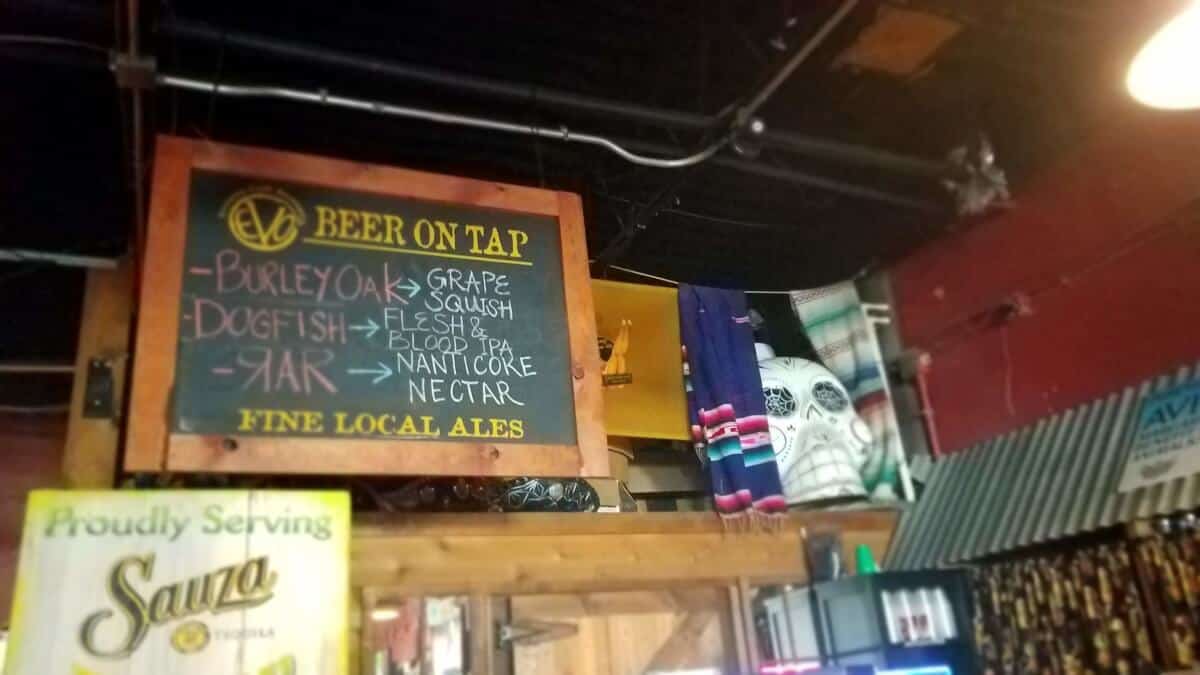 EVO BEER ON TAP
-BURLEY OAK→ GRAPE
SQUISH
-DOGFISH→ FLESH &
BLOOD IPA
-RAR → NANTICOKE
NECTAR
FINE LOCAL ALES
Proudly Serving
Sauza
TEQUILA